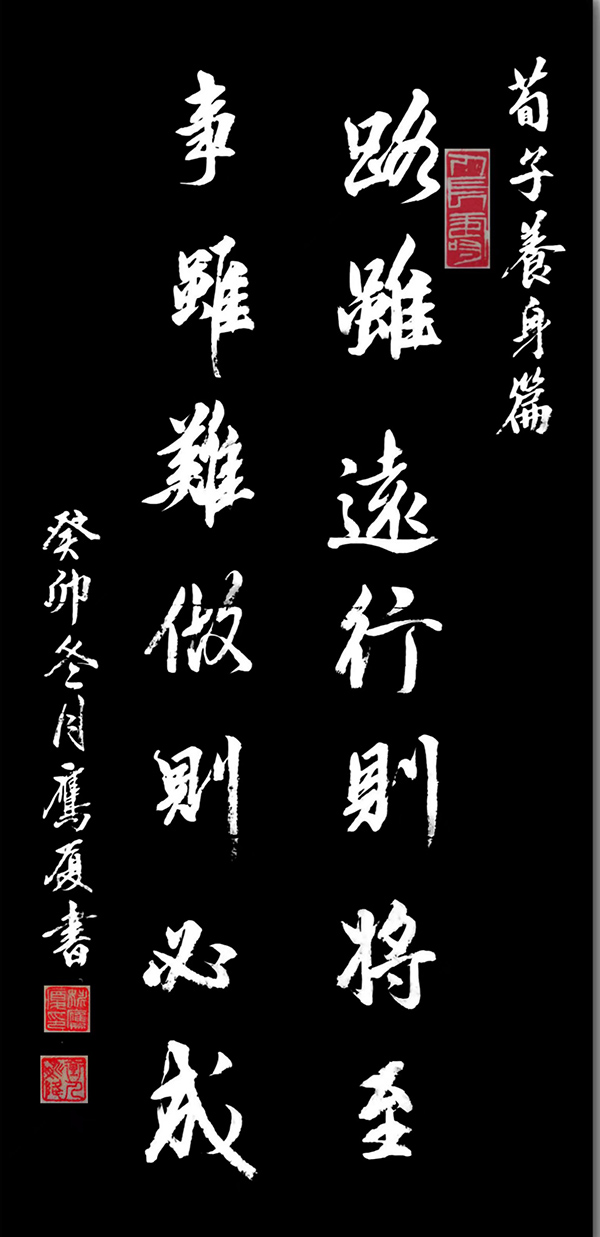 荀子養身篇
路雖遠行則將至
事雖難做則必成
癸卯冬月鷹厦書